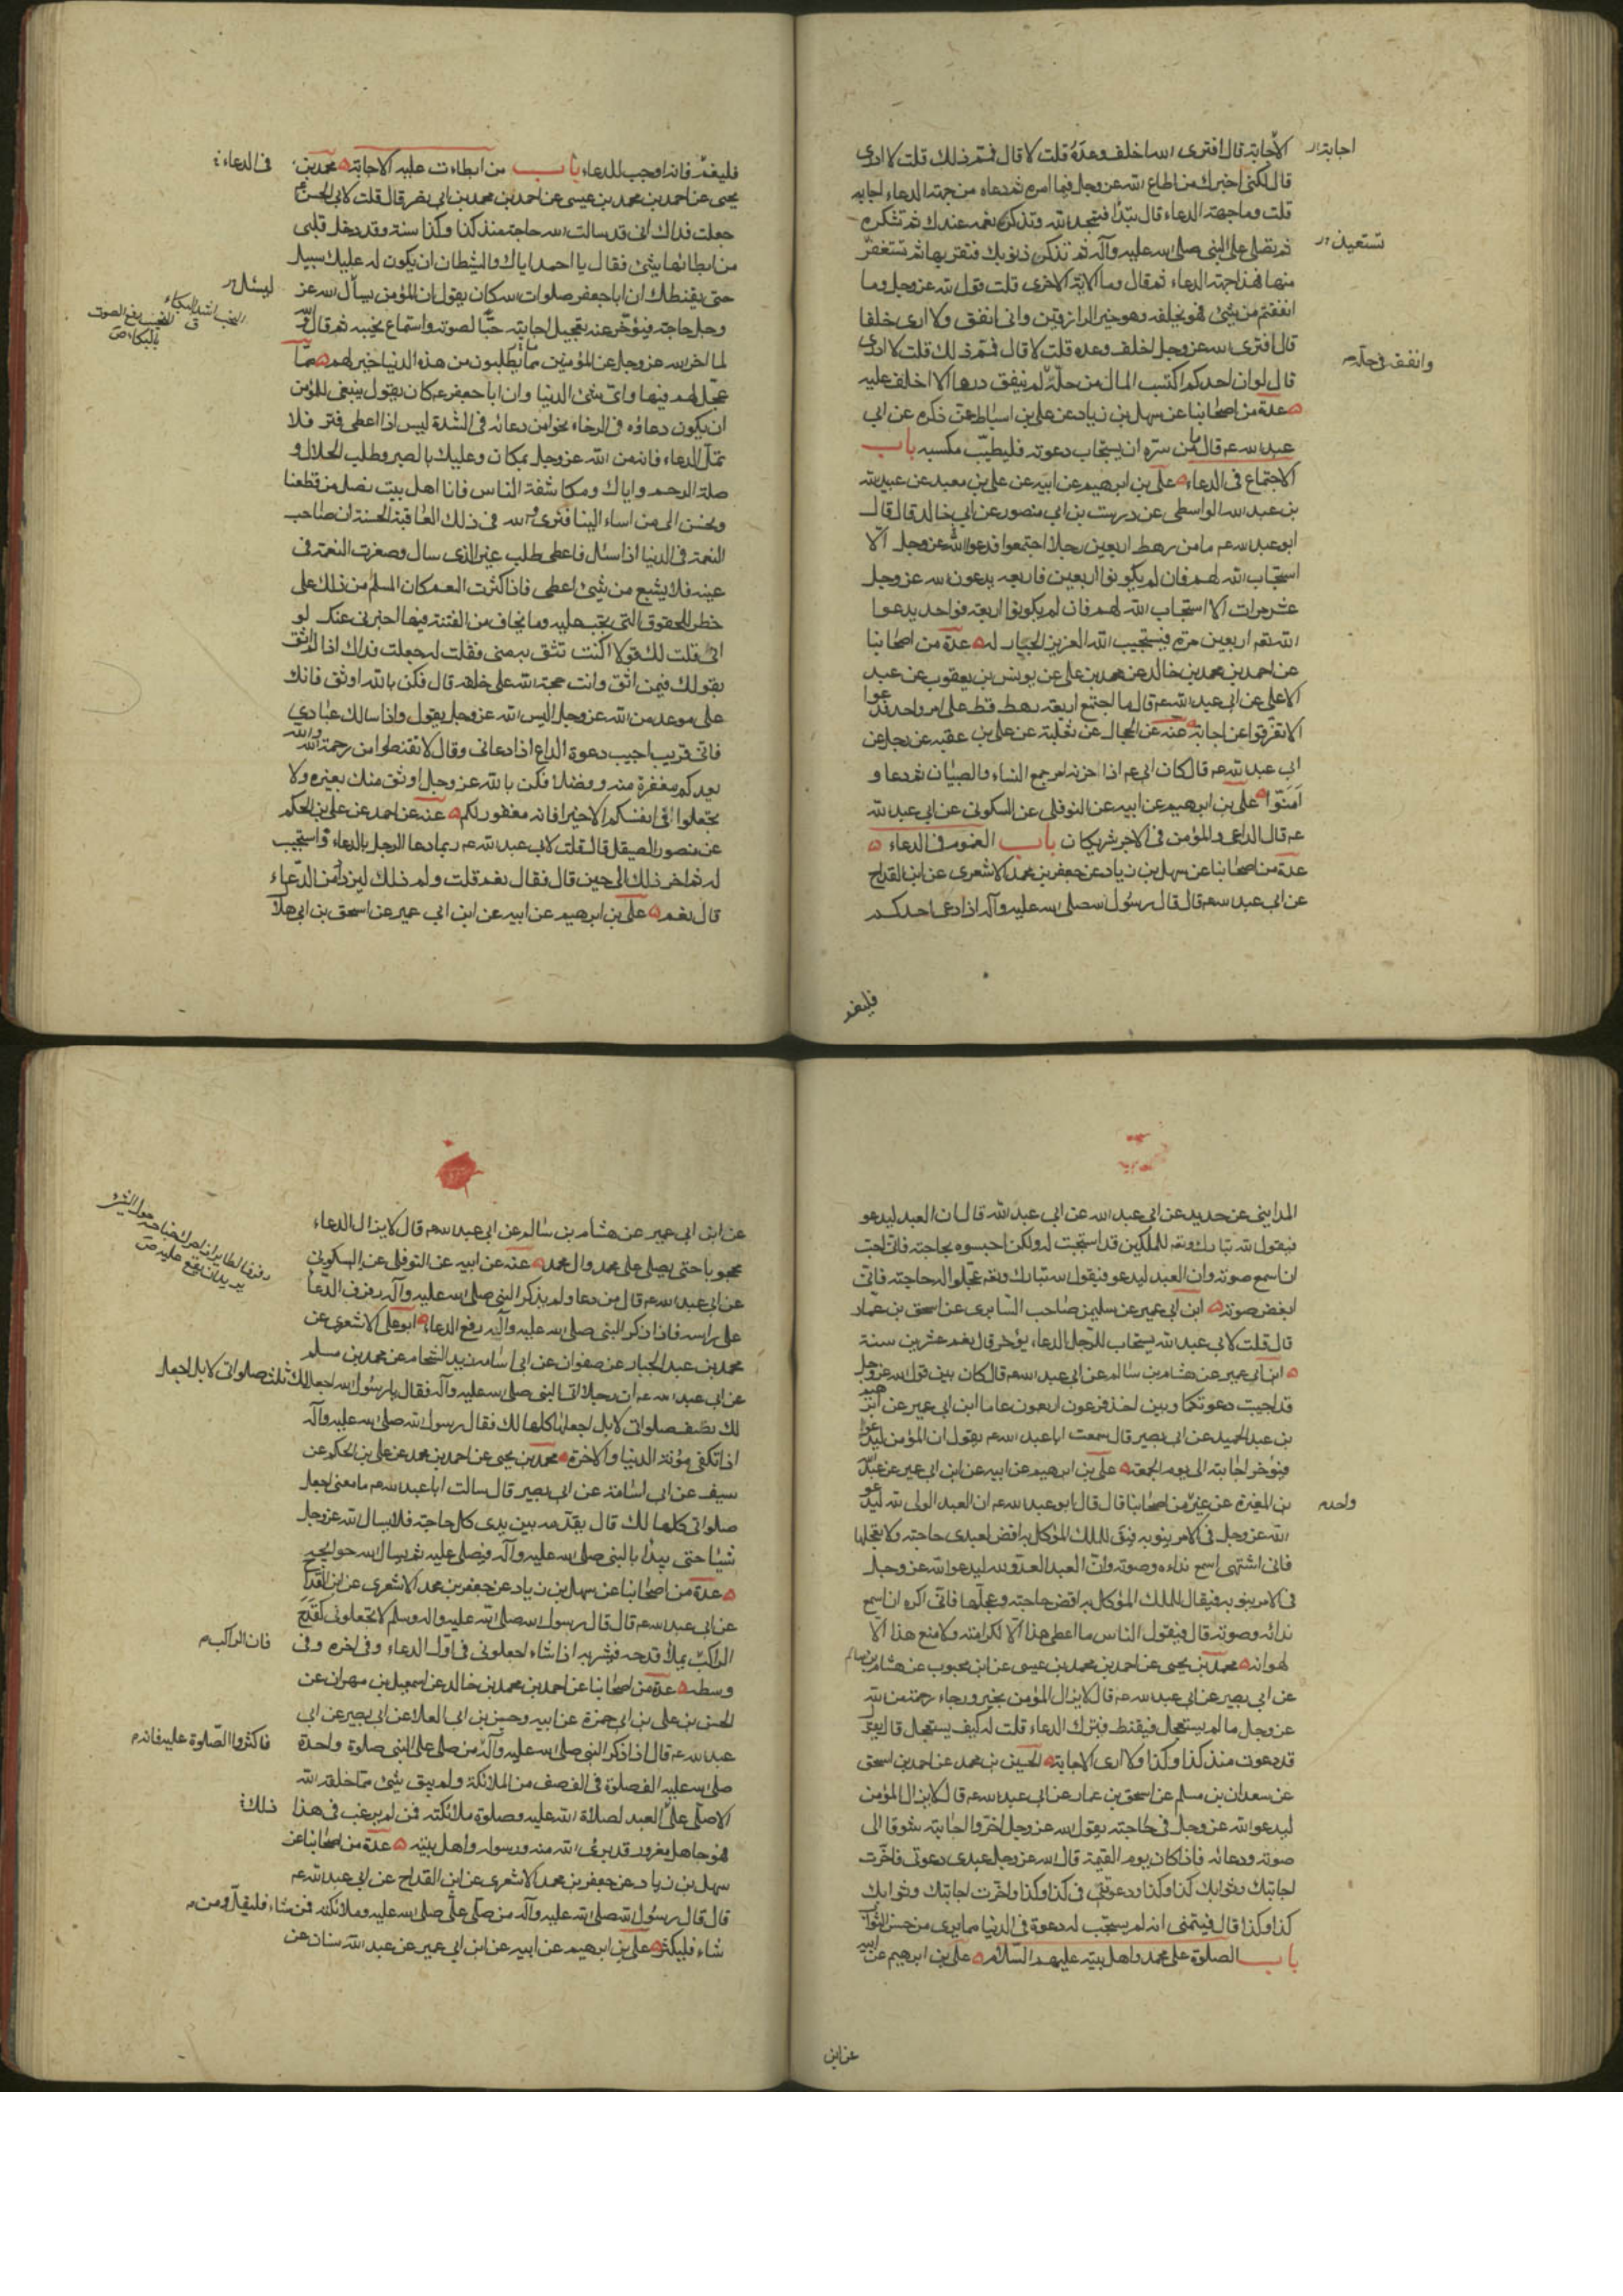 الاجابة قال افترى الله اخلف وعده قلت لا قال فمم ذلك قلت لا ادرى
اجابة
قال لكنى اخبرك من اطاع الله عز وجل فيما امره ثم دعاه من جهة الدعاء اجابه
قلت وما جهة الدعاء قال تبدأ فتحمد الله وتذكر نعمه عندك ثم تشكره
ثم تصلى على النبى صلى الله عليه وآله ثم تذكر ذنوبك فتقر بها ثم تستغفر
تستعيذ
منها فهذا جهة الدعاء ثم قال وما الاية الاخرى قلت قول الله عز وجل وما
انفقتم من شئ فهو يخلفه وهو خير الرازقين وانى انفق ولا ارى خلفا
قال افترى الله عز وجل اخلف وعده قلت لا قال فمم ذلك قلت لا ادرى
وانفقه فى حله
قال لو ان احدكم اكتسب المال من حله لم ينفق درهما الا اخلف عليه
عدة من اصحابنا عن سهل بن زياد عن على بن اسباط عمن ذكره عن ابى
عبد الله ع قال من سره ان يستجاب دعوته فليطيب مكسبه باب
الاجتماع فى الدعاء على بن ابرهيم عن ابيه عن على بن معبد عن عبيد الله
بن عبد الله الواسطى عن درست بن ابى منصور عن ابى خالد قال قال
ابو عبد الله ع ما من رهط اربعين رجلا اجتمعوا فدعوا الله عز وجل الا
استجاب الله لهم فان لم يكونوا اربعين فاربعه يدعون الله عز وجل
عشر مرات الا استجاب الله لهم فان لم يكونوا اربعة فواحد يدعوا
الله اربعين مرة فيستجيب الله العزيز الجبار له عدة من اصحابنا
عن احمد بن محمد بن خالد عن محمد بن على عن يونس بن يعقوب عن عبد
الاعلى عن ابى عبد الله ع قال ما اجتمع اربعة رهط قط على امر واحد فدعوا
الا تفرقوا عن اجابة عنه عن الحجال عن ثعلبة عن على بن عقبه عن رجل عن
ابى عبد الله ع قال كان ابى ع اذا حزنه امر جمع النساء والصبيان ثم دعا و
امنوا على بن ابرهيم عن ابيه عن النوفلى عن السكونى عن ابى عبد الله
ع قال الداعى والمؤمن فى الاجر شريكان باب العموم فى الدعاء
عدة من اصحابنا عن سهل بن زياد عن جعفر بن محمد الاشعرى عن ابن القداح
عن ابى عبد الله ع قال قال رسول الله صلى الله عليه وآله اذا دعا احدكم
فليعم
فليعم فانه اوجب للدعاء باب من ابطاءت عليه الاجابة محمد بن
فى الدعاء
يحيى عن احمد بن محمد بن عيسى عن احمد بن محمد بن ابى نصر قال قلت لابى الحسن ع
جعلت فداك انى قد سالت الله حاجة منذ كذا وكذا سنة وقد دخل قلبى
من ابطائها شئ فقال يا احمد اياك والشيطان ان يكون له عليك سبيل
حتى يقنطك ان ابا جعفر صلوات الله كان يقول ان المؤمن يسأل الله عز
ليسئل
وجل حاجة فيؤخر عنه تعجيل اجابته حبا لصوته واستماع نحيبه ثم قال والله
النحب اشد البكاء
النحيب رفع الصوت
بالبكاء ص
لما اخر الله عز وجل عن المؤمنين ما يطلبون من هذه الدنيا خير لهم مما
عجل لهم فيها واى شئ الدنيا وان ابا جعفر ع كان يقول ينبغى للمؤمن
ان يكون دعاؤه فى الرخاء نحوا من دعائه فى الشدة ليس اذا اعطى فتر فلا
تمل الدعاء فانه من الله عز وجل بمكان وعليك بالصبر وطلب الحلال و
صلة الرحم واياك ومكاشفة الناس فانا اهل بيت نصل من قطعنا
ونحسن الى من اساء الينا فنرى والله فى ذلك العاقبة الحسنة ان صاحب
النعمة فى الدنيا اذا سئل فاعطى طلب غير الذى سال وصغرت النعمة فى
عينه فلا يشبع من شئ اعطى فاذا كثرت النعم كان المسلم من ذلك على
خطر للحقوق التى تجب عليه وما يخاف من الفتنة فيها اخبرنى عنك لو
انى قلت لك قولا اكنت تثق به منى فقلت له جعلت فداك اذا لم اثق
بقولك فبمن اثق وانت حجة الله على خلقه قال فكن بالله اوثق فانك
على موعد من الله عز وجل اليس الله عز وجل يقول واذا سالك عبادى
فانى قريب اجيب دعوة الداع اذا دعانى وقال لا تقنطوا من رحمة الله والله
يعدكم مغفرة منه وفضلا فكن بالله عز وجل اوثق منك بغيره ولا
تجعلوا فى انفسكم الا خيرا فانه مغفور لكم عنه عن احمد عن على بن الحكم
عن منصور الصيقل قال قلت لابى عبد الله ع ربما دعا الرجل بالدعاء فاستجيب
له ثم اخر ذلك الى حين قال فقال نعم قلت ولم ذلك ليزداد من الدعاء
قال نعم على بن ابرهيم عن ابيه عن ابن ابى عمير عن اسحق بن ابى هلال
المداينى عن حديد عن ابى عبد الله عن ابى عبد الله قال ان العبد ليدعو
فيقول الله تبارك وتعه للملكين قد استجبت له ولكن احبسوه بحاجته فانى احب
ان اسمع صوته وان العبد ليدعو فيقول الله تبارك وتعه عجلوا له حاجته فانى
ابغض صوته ابن ابى عمير عن سليمن صاحب السابرى عن اسحق بن عمار
قال قلت لابى عبد الله يستجاب للرجل الدعاء يؤخر قال نعم عشرين سنة
ابن ابى عمير عن هشام بن سالم عن ابى عبد الله ع قال كان بين قول الله عز وجل
قد اجيبت دعوتكما وبين اخذ فرعون اربعون عاما ابن ابى عمير عن ابرهيم
بن عبد الحميد عن ابى بصير قال سمعت ابا عبد الله ع يقول ان المؤمن ليدعوا
فيؤخر اجابته الى يوم الجمعة على بن ابرهيم عن ابيه عن ابن ابى عمير عن عبد الله
بن المغيرة عن غير من اصحابنا قال قال ابو عبد الله ع ان العبد الولى لله ليدعو
واحد
الله عز وجل فى الامر ينوبه فيقال للملك الموكل به اقض لعبدى حاجته ولا تعجلها
فانى اشتهى اسمع نداءه وصوته وان العبد العدو لله ليدعوا الله عز وجل
فى الامر ينوبه فيقال للملك الموكل به اقض حاجته وعجلها فانى اكره ان اسمع
ندائه وصوته قال فيقول الناس ما اعطى هذا الا لكرامته ولا منع هذا الا
لهوانه محمد بن يحيى عن احمد بن محمد بن عيسى عن ابن محبوب عن هشام بن سالم
عن ابى بصير عن ابى عبد الله ع قال لا يزال المؤمن بخير ورجاء رحمة من الله
عز وجل ما لم يستعجل فيقنط فيترك الدعاء قلت له كيف يستعجل قال يقول
قد دعوت منذ كذا وكذا ولا ارى الاجابة الحسين بن محمد عن احمد بن اسحق
عن سعدان بن مسلم عن اسحق بن عمار عن ابى عبد الله ع قال لا يزال المؤمن
ليدعو الله عز وجل فى حاجته يقول الله عز وجل اخروا اجابته شوقا الى
صوته ودعائه فاذا كان يوم القيمة قال الله عز وجل عبدى دعوتى فاخرت
اجابتك وثوابك كذا وكذا ودعوتنى فى كذا وكذا واخرت اجابتك وثوابك
كذا وكذا قال فيتمنى انه لم يستجب له دعوة فى الدنيا مما يرى من حسن الثواب
باب الصلوة على محمد واهل بيته عليهم السلام على بن ابرهيم عن ابيه
عن ابن
عن ابن ابى عمير عن هشام بن سالم عن ابى عبد الله ع قال لا يزال الدعاء
محجوبا حتى يصلى على محمد وال محمد عنه عن ابيه عن النوفلى عن السكونى
عن ابى عبد الله ع قال من دعا ولم يذكر النبى صلى الله عليه وآله رفرف الدعا
رفرف الطاير اذا حرك جناحه حول الشئ
يريد ان يقع عليه ص
على راسه فاذا ذكر النبى صلى الله عليه وآله رفع الدعاء ابو على الاشعرى عن
محمد بن عبد الجبار عن صفوان عن ابى اسامة زيد الشحام عن محمد بن مسلم
عن ابى عبد الله ع ان رجلا اتى النبى صلى الله عليه وآله فقال يا رسول الله اجعل لك ثلث صلواتى لا بل اجعل
لك نصف صلواتى لا بل اجعلها كلها لك فقال رسول الله صلى الله عليه وآله
اذا تكفى مؤنة الدنيا والاخرة محمد بن يحيى عن احمد بن محمد عن على بن الحكم عن
سيف عن ابى اسامة عن ابى بصير قال سالت ابا عبد الله ع ما معنى اجعل
صلواتى كلها لك قال يقدمه بين يدى كل حاجة فلا يسال الله عز وجل
شيئا حتى يبدأ بالنبى صلى الله عليه وآله فيصلى عليه ثم يسال الله حوائجه
عدة من اصحابنا عن سهل بن زياد عن جعفر بن محمد الاشعرى عن ابن القداح
عن ابى عبد الله ع قال قال رسول الله صلى الله عليه واله وسلم لا تجعلونى كقدح
الراكب يملأ قدحه فيشربه اذا شاء اجعلونى فى اول الدعاء وفى اخره وفى
فان الراكب
وسطه عدة من اصحابنا عن احمد بن محمد بن خالد عن اسمعيل بن مهران عن
الحسن بن على بن ابى حمزة عن ابيه وحسين بن ابى العلا عن ابى بصير عن ابى
عبد الله ع قال اذا ذكر النبى صلى الله عليه وآله من صلى على النبى صلوة واحدة
فاكثروا الصلوة عليه فانه
صلى الله عليه الف صلوة فى الف صف من الملائكة ولم يبق شئ مما خلقه الله
الا صلى على العبد لصلاة الله عليه وصلوة ملائكته فمن لم يرغب فى هذا
ذلك
فهو جاهل مغرور قد برئ الله منه ورسوله واهل بيته عدة من اصحابنا عن
سهل بن زياد عن جعفر بن محمد الاشعرى عن ابن القداح عن ابى عبد الله ع
قال قال رسول الله صلى الله عليه وآله من صلى على صلى الله عليه وملائكته فمن شاء فليقل ومن
شاء فليكثر على بن ابرهيم عن ابيه عن ابن ابى عمير عن عبد الله سنان عن